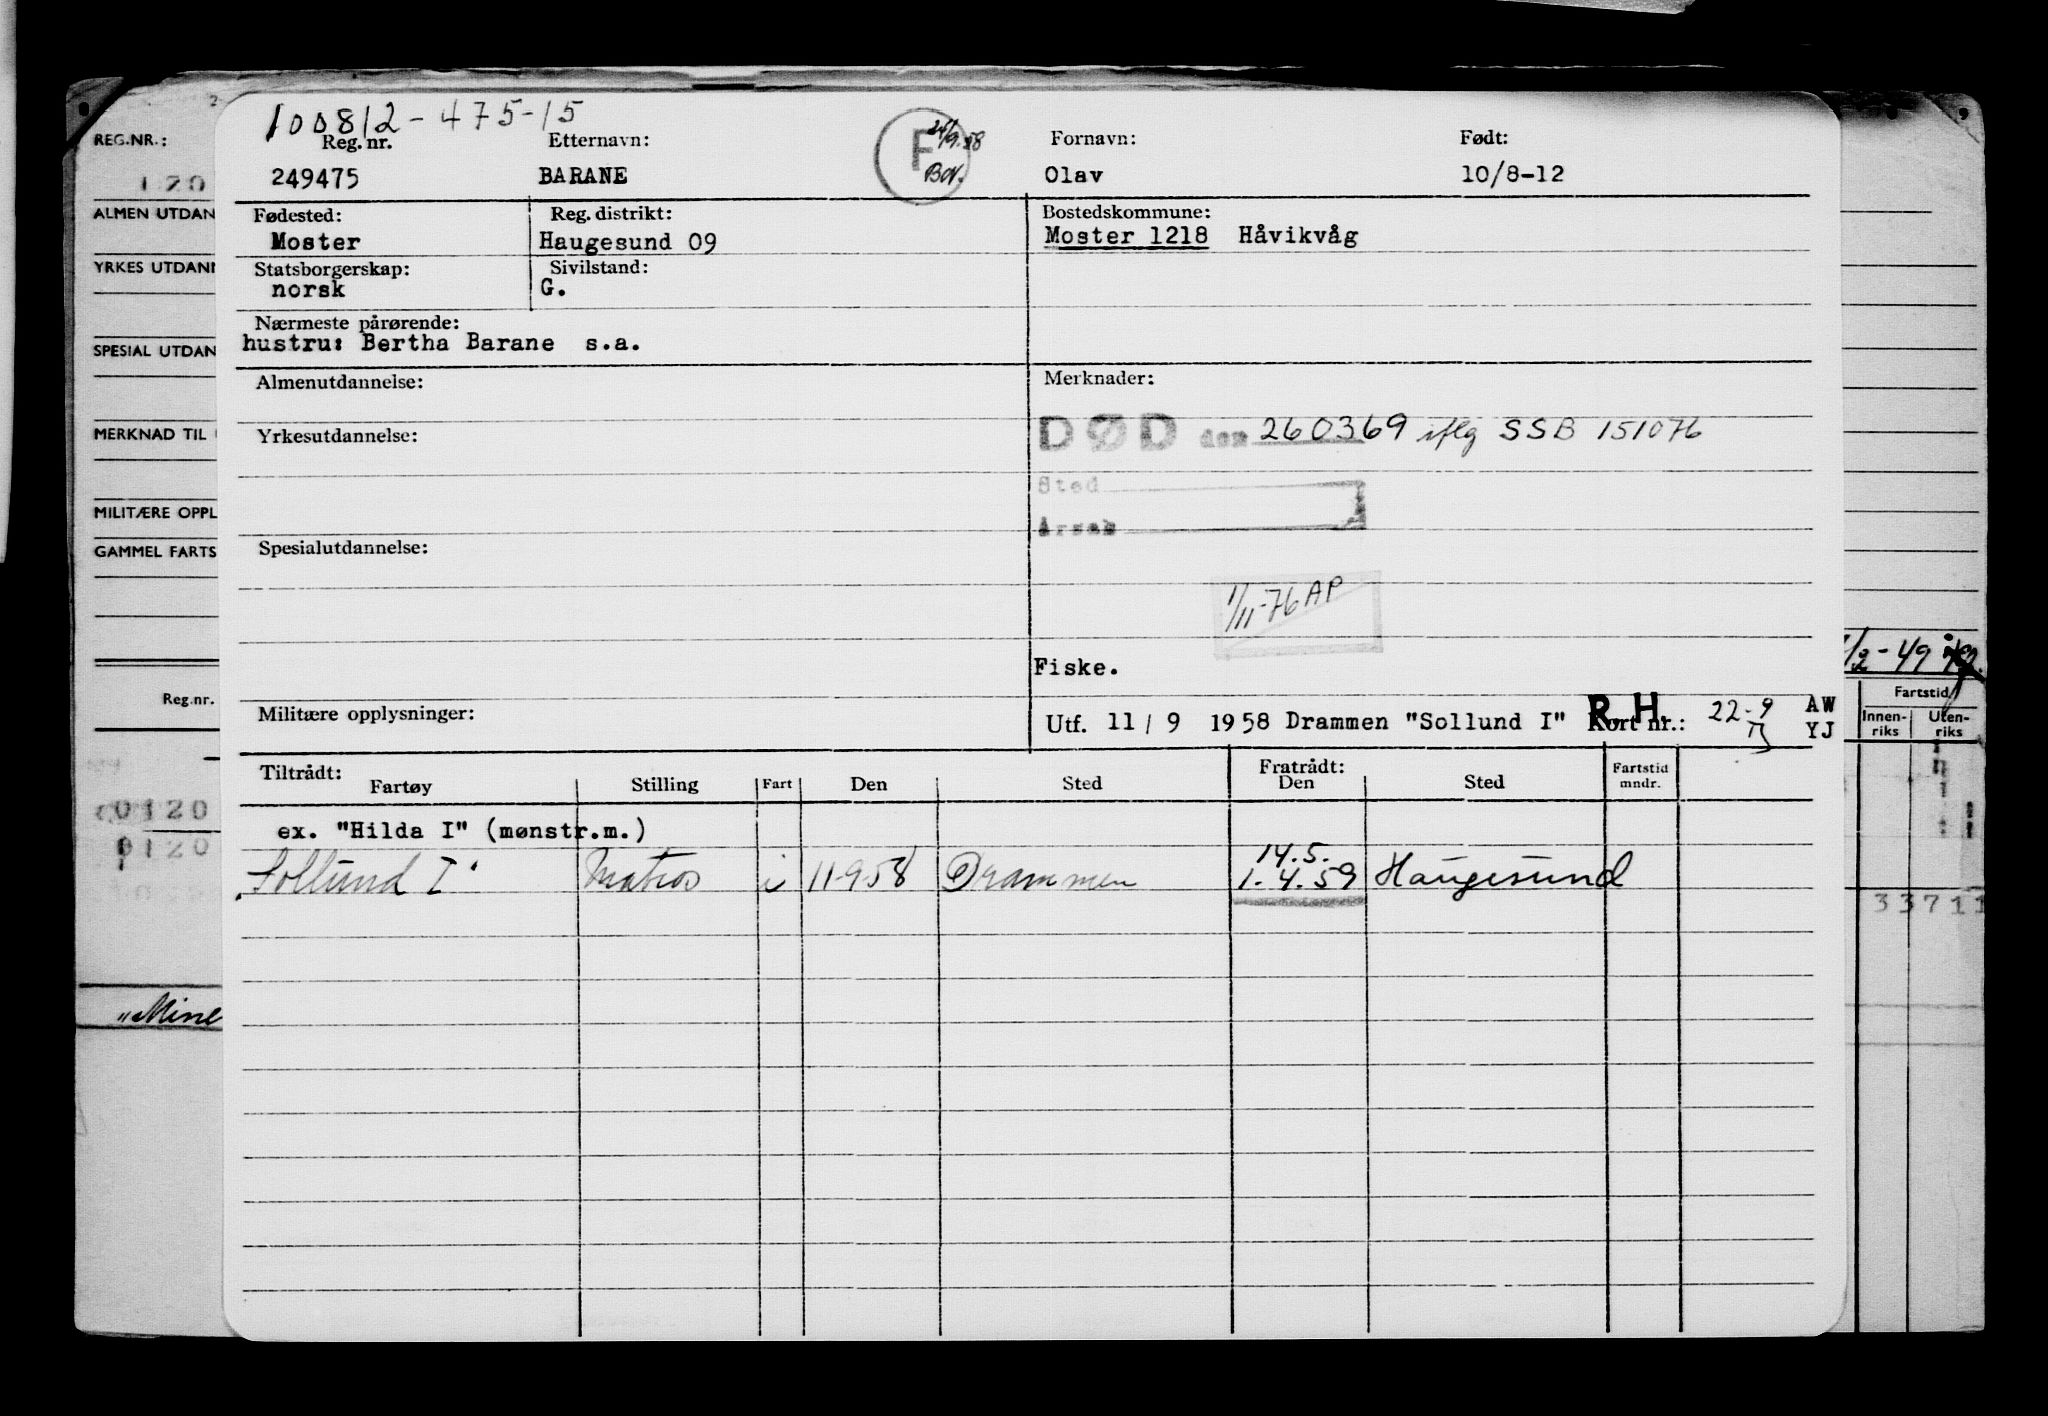 100812-475-15
REG.NR.:
Reg. nr.
Etternavn:
F
24/9.58
Bor.
Fornavn:
Født:
120
249475
BARANE
Olav
10/8-12
ALMEN UTDAN
Fødested:
Reg. distrikt:
Bostedskommune:
Moster
Haugesund 09
Moster 1218 Håvikvåg
YRKES UTDAN
Statsborgerskap:
Sivilstand:
norsk
G.
Nærmeste pårørende:
hustru: Bertha Barane s.a.
SPESIAL UTDAN
Almenutdannelse:
Merknader:
MERKNAD TIL
Yrkesutdannelse:
DØD den 260369 iflg SSB 151076
Sted
Årsak
MILITÆRE OPPL
GAMMEL FARTS
Spesialutdannelse:
1/11-76 AP
Fiske.
/2-49
Reg.nr.
Fartstid
Militære opplysninger:
Utf. 11/9 1958 Drammen "Sollund I" Kort nr.: 22-9
R.H.
AW
YJ
Innen-riks
Uten-riks
Tiltrådt:
Fartøy
Stilling
Fart
Den
Sted
Fratrådt:
Den
Sted
Fartstid
mndr.
0120
ex. "Hilda I" (mønstr.m.)
0120
14.5.
"Sollund I" Matros i 11-9-58 Drammen 1.4.59 Haugesund
33711
"Mine